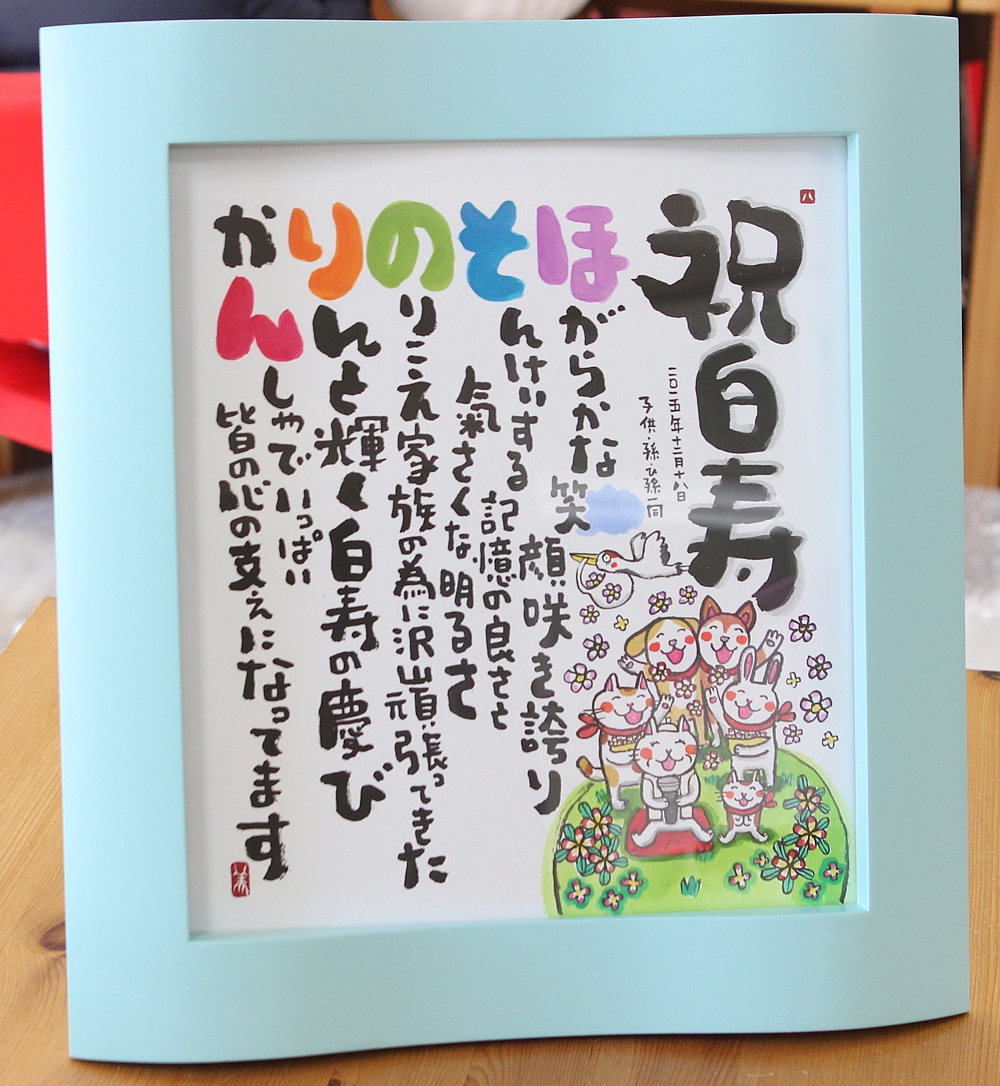 八
祝白寿
二〇一五年十二月十八日
子供・孫・ひ孫一同
ほがらかな笑
顔咲き誇り
そんけいする
記憶の良さと
氣さくな明るさ
のりこえ家族の為に沢山頑張ってきた
りんと輝く白寿の慶び
かんしゃでいっぱい
皆の心の支えになってます
美